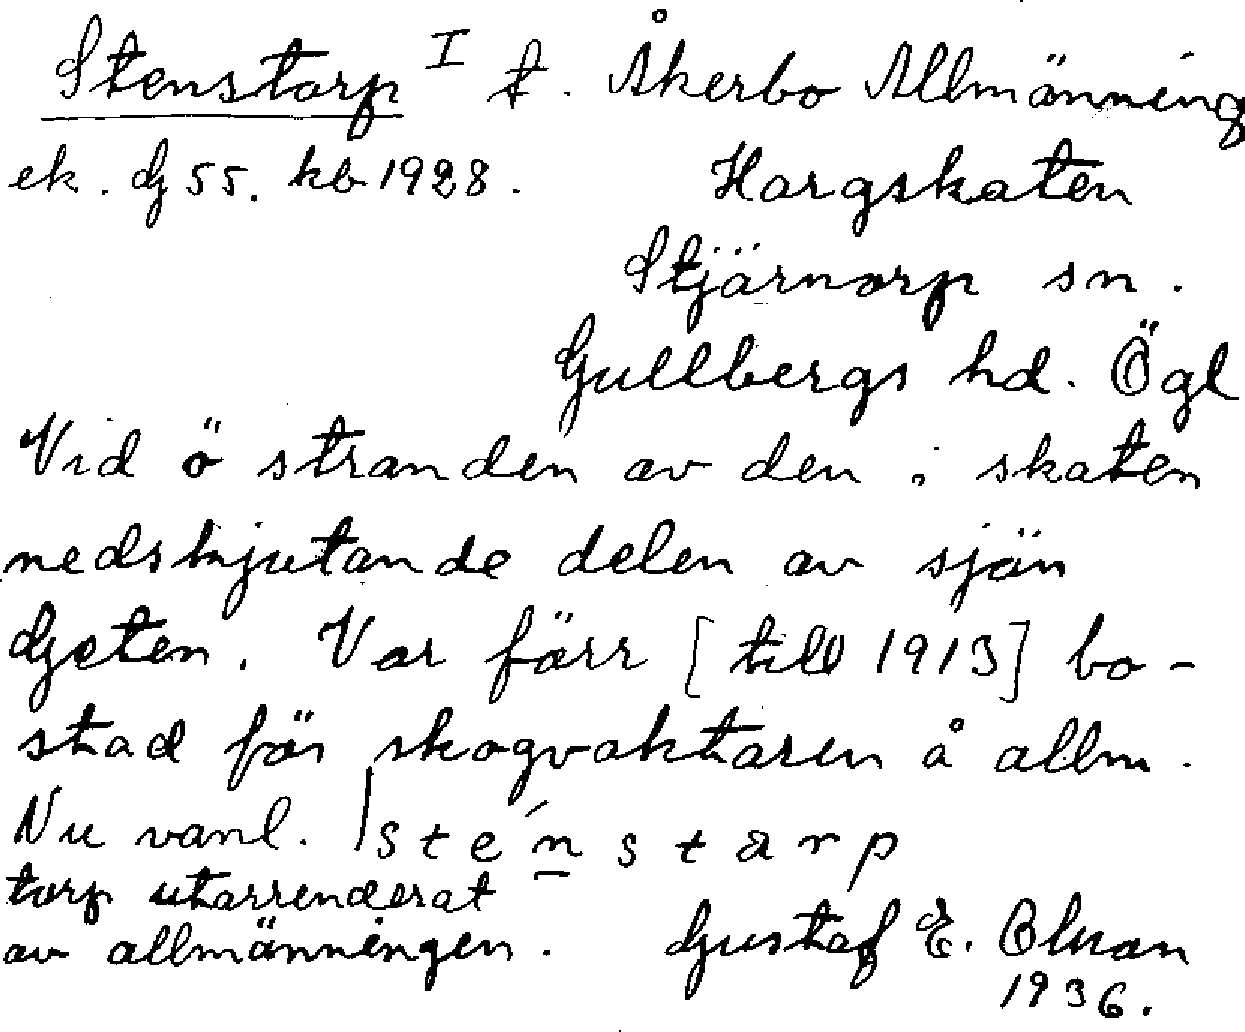 Stenstorp I t. Åkerbo Allmänning
ek. dj 55. kb 1928.
Hargskaten
Stjärnorp sn.
Gullbergs hd. Ögl
Vid ö stranden av den i skaten
nedskjutande delen av sjön
Geten. Var förr [till 1913] bo-
stad för skogvaktaren å allm.
Nu vanl. torp utarrenderat
av allmänningen.
sténstårp
Gustaf E. Olson
1936.